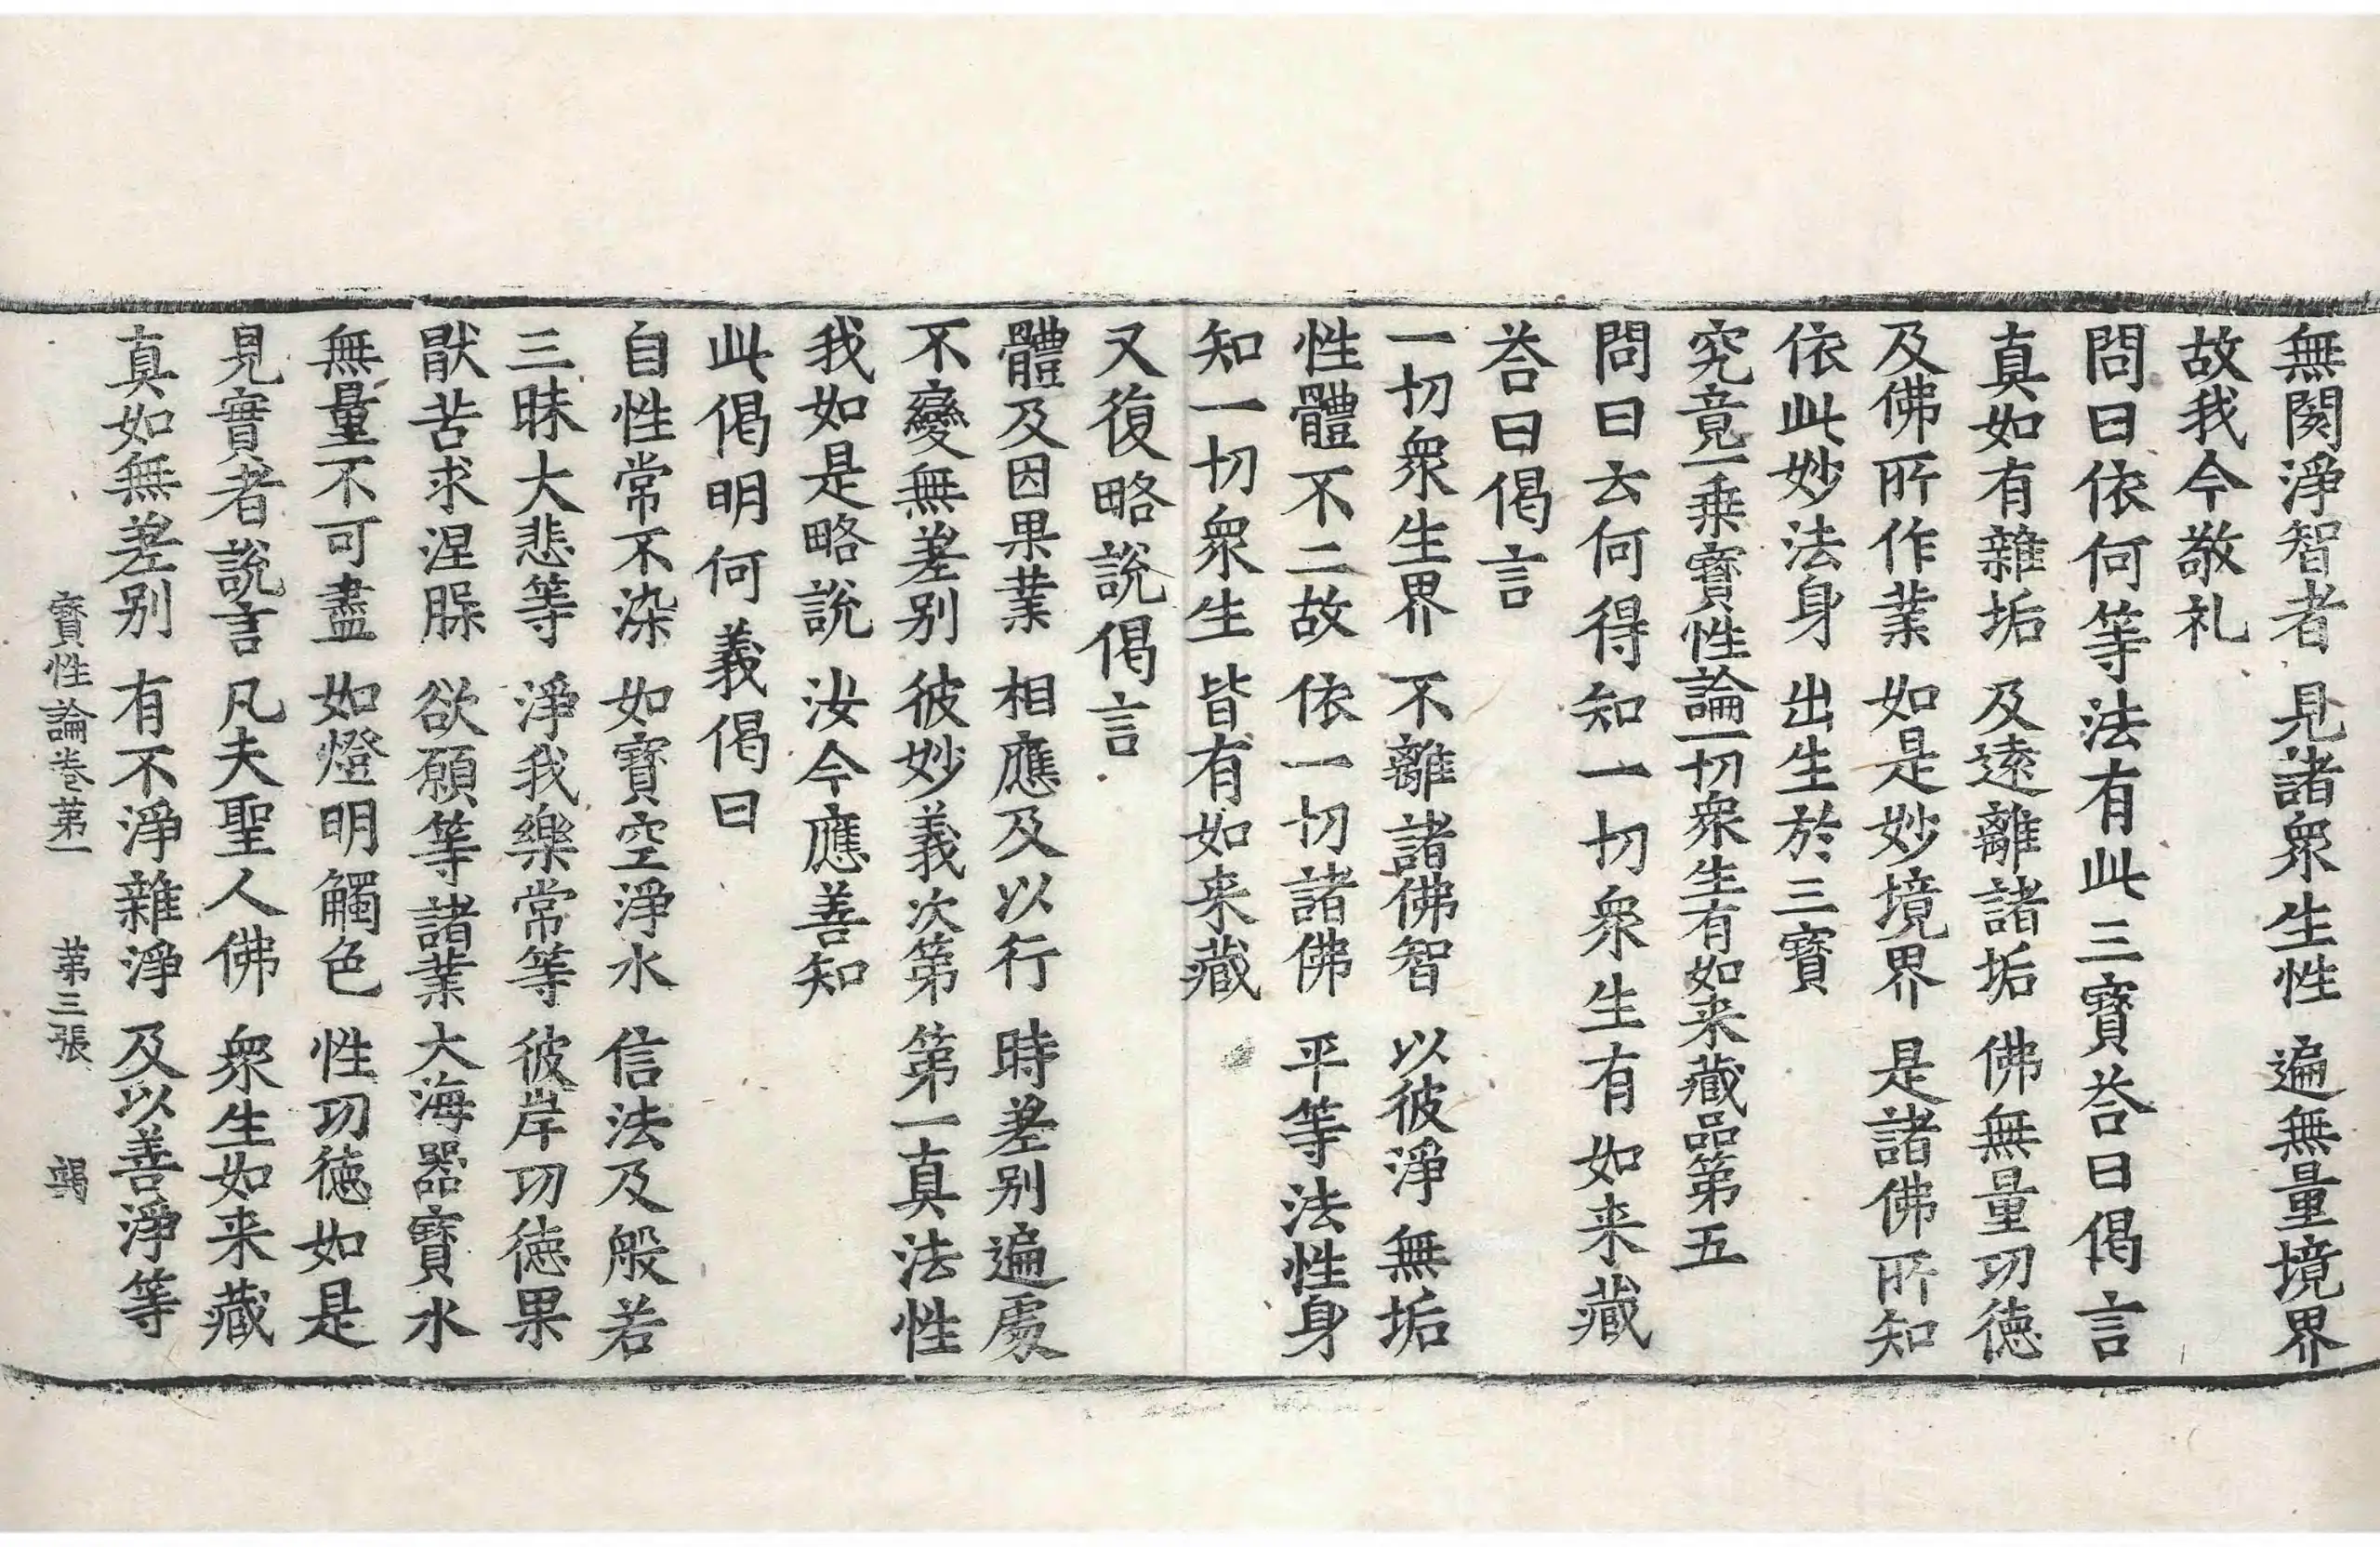 無閡淨智者 見諸衆生性 遍無量境界
故我今敬礼
問曰依何等法有此三寶荅曰偈言
真如有雜垢 及遠離諸垢 佛無量功德
及佛所作業 如是妙境界 是諸佛所知
依此妙法身 出生於三寶
究竟一乗寶性論一切衆生有如来藏品第五
問曰云何得知一切衆生有如来藏
荅曰偈言
一切衆生界 不離諸佛智 以彼淨無垢
性體不二故 依一切諸佛 平等法性身
知一切衆生 皆有如来藏
又復略說偈言
體及因果業 相應及以行 時差别遍處
不變無差别 彼妙義次第 第一真法性
我如是略說 汝今應善知
此偈明何義偈曰
自性常不染 如寶空淨水 信法及般若
三昧大悲等 淨我樂常等 彼岸功德果
猒苦求涅槃 欲願等諸業 大海器寶水
無量不可盡 如燈明觸色 性功德如是
見實者說言 凡夫聖人佛 衆生如来藏
真如無差别 有不淨雜淨 及以善淨等
寶性論卷第一 第三張 竭